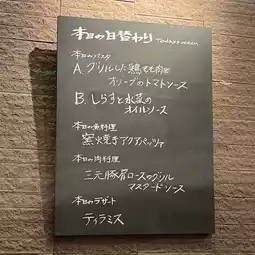 本日の日替わり TODAY'S MENU
本日のパスタ
A. グリルした鶏もも肉と
オリーブのトマトソース
B. しらすと水菜の
オイルソース
本日の魚料理
窯焼きアクアパッツァ
本日の肉料理
三元豚肩ロースのグリル
マスタードソース
本日のデザート
ティラミス